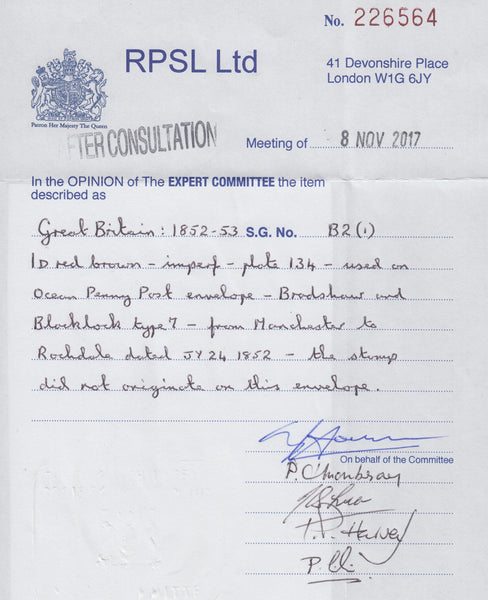 No. 226564
RPSL Ltd
41 Devonshire Place
London W1G 6JY
Patron Her Majesty The Queen
AFTER CONSULTATION
Meeting of 8 NOV 2017
In the OPINION of The EXPERT COMMITTEE the item
described as
Great Britain: 1852-53 S.G. No. B2(1)
1D red brown - imperf - plate 134 - used on
Ocean Penny Post envelope - Bradshaw and
Blacklock type 7 - from Manchester to
Rochdale dated JY 24 1852 - the stamp
did not originate on this envelope.
On behalf of the Committee